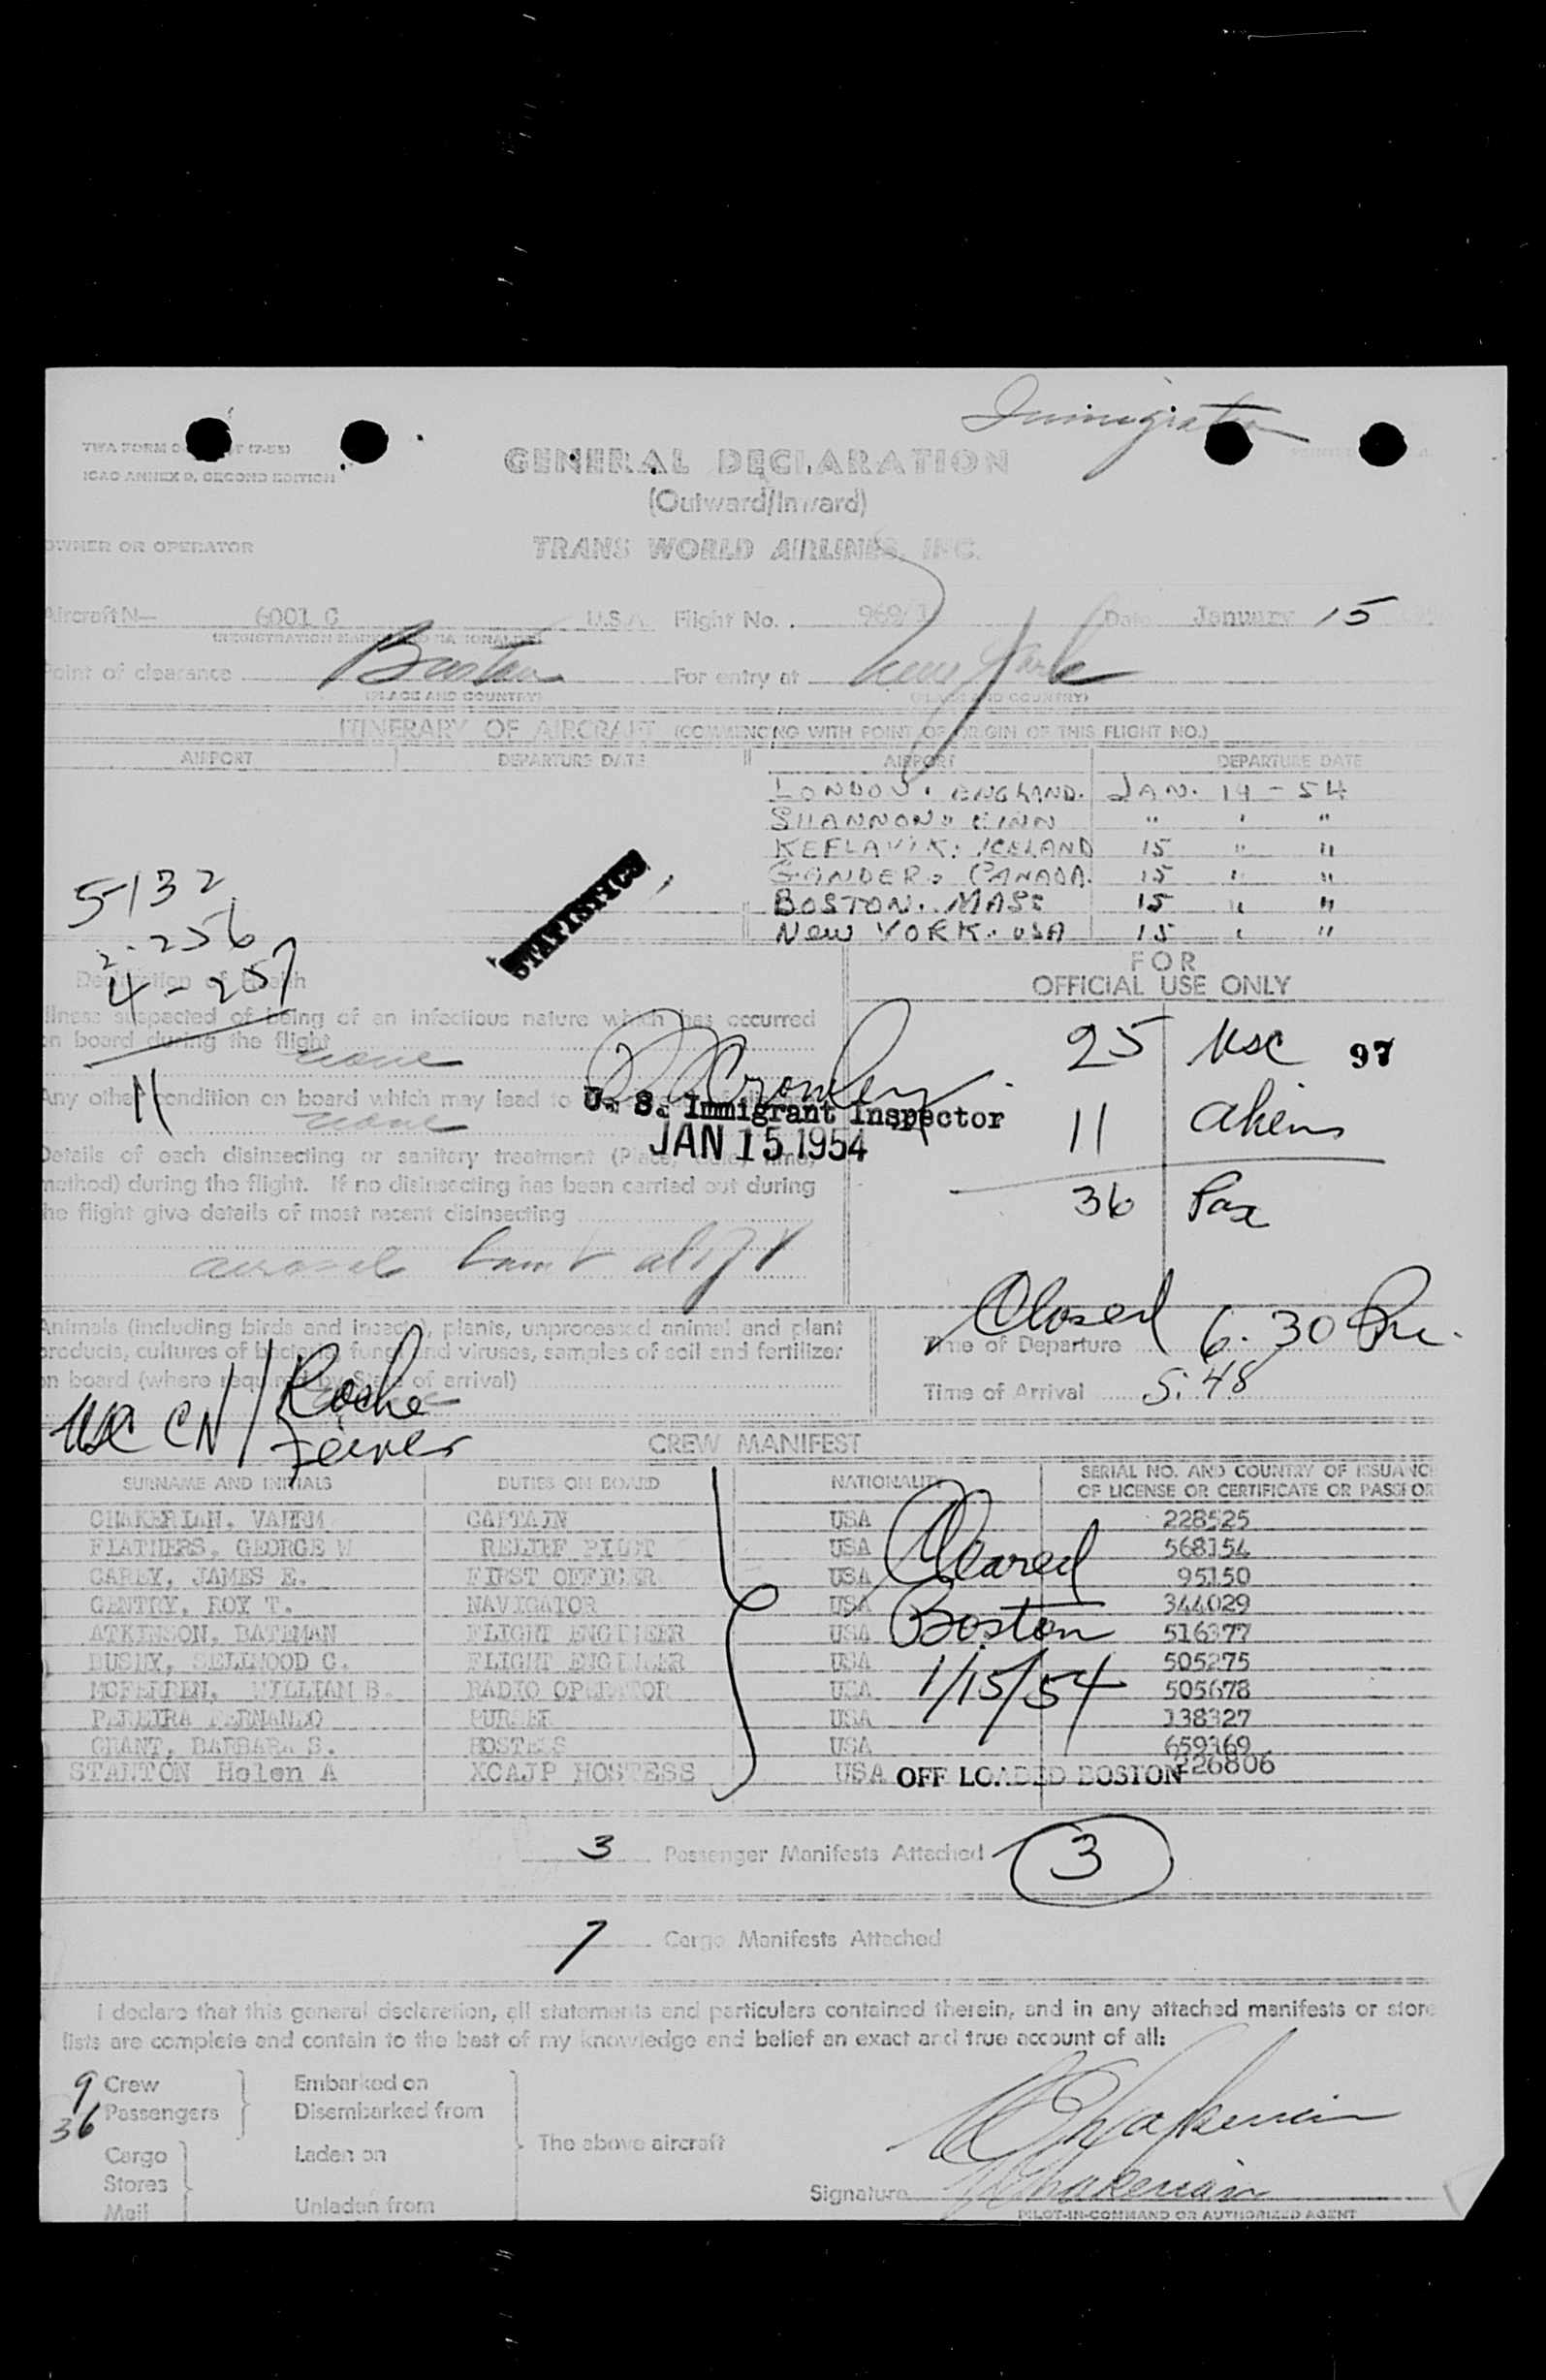 Immigration
TWA FORM
ICAO ANNEX 9, SECOND EDITION
GENERAL DECLARATION
(Outward/Inward)
OWNER OR OPERATOR
TRANS WORLD AIRLINES, INC.
Aircraft N— 6001 C U.S.A. Flight No. 969 Date January 15
Point of clearance Boston For entry at New York
(PLACE AND COUNTRY) (PLACE AND COUNTRY)
ITINERARY OF AIRCRAFT (COMMENCING WITH POINT OF ORIGIN OF THIS FLIGHT NO.)
AIRPORT DEPARTURE DATE AIRPORT DEPARTURE DATE
LONDON. ENGLAND. JAN. 14 - 54
SHANNON " " "
KEFLAVIK. ICELAND 15 " "
GANDER. CANADA. 15 " "
BOSTON. MASS 15 " "
New YORK. USA 15 " "
STATISTICS
5-132
2-256
4-257
11
Declaration of Health
Illness suspected of being of an infectious nature which has occurred
on board during the flight
none
Any other condition on board which may lead to
none
U. S. Immigrant Inspector
JAN 15 1954
Details of each disinsecting or sanitary treatment (Place, date, time,
method) during the flight. If no disinsecting has been carried out during
the flight give details of most recent disinsecting
FOR
OFFICIAL USE ONLY
25 USC 97
11 Aliens
36 Pax
Animals (including birds and insects), plants, unprocessed animal and plant
products, cultures of bacteria, fungi and viruses, samples of soil and fertilizer
on board (where required by State of arrival)
Closed 6:30 Pm.
Time of Departure
Time of Arrival 5:48
CREW MANIFEST
SURNAME AND INITIALS DUTIES ON BOARD NATIONALITY SERIAL NO. AND COUNTRY OF ISSUANCE
OF LICENSE OR CERTIFICATE OR PASSPORT
CHAKERIAN, VAHRM CAPTAIN USA 228525
FLATHERS, GEORGE W RELIEF PILOT USA 568154
CAREY, JAMES E. FIRST OFFICER USA 95150
GENTRY, ROY T. NAVIGATOR USA 344029
ATKINSON, BATEMAN FLIGHT ENGINEER USA 516377
BUSHY, SELLWOOD C. FLIGHT ENGINEER USA 505275
MCFERREN, WILLIAM B. RADIO OPERATOR USA 505678
PEREIRA FERNANDO PURSER USA 138327
GRANT, BARBARA S. HOSTESS USA 659369
STANTON Helen A XCAJP HOSTESS USA OFF LOADED BOSTON 226806
Cleared
Boston
1/15/54
3 Passenger Manifests Attached 3
1 Cargo Manifests Attached
I declare that this general declaration, all statements and particulars contained therein, and in any attached manifests or store
lists are complete and contain to the best of my knowledge and belief an exact and true account of all:
9 Crew Embarked on
36 Passengers Disembarked from
The above aircraft
Cargo Laden on
Stores
Mail Unladen from
Signature
PILOT-IN-COMMAND OR AUTHORIZED AGENT